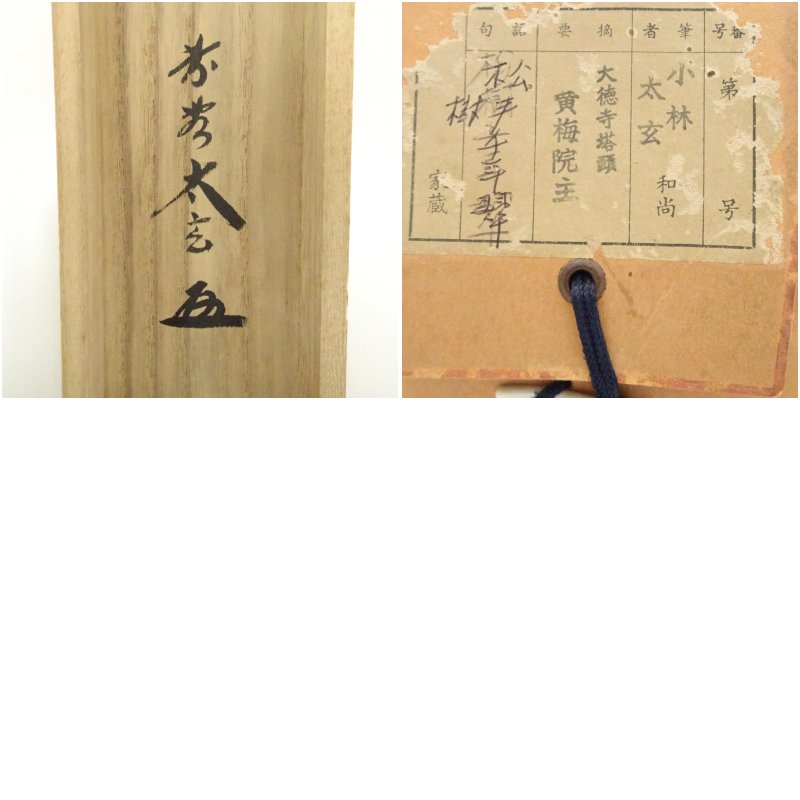 太玄
番号
第 号
筆者
小林
太玄
和尚
摘要
大徳寺塔頭
黄梅院主
松樹千年翠
家蔵